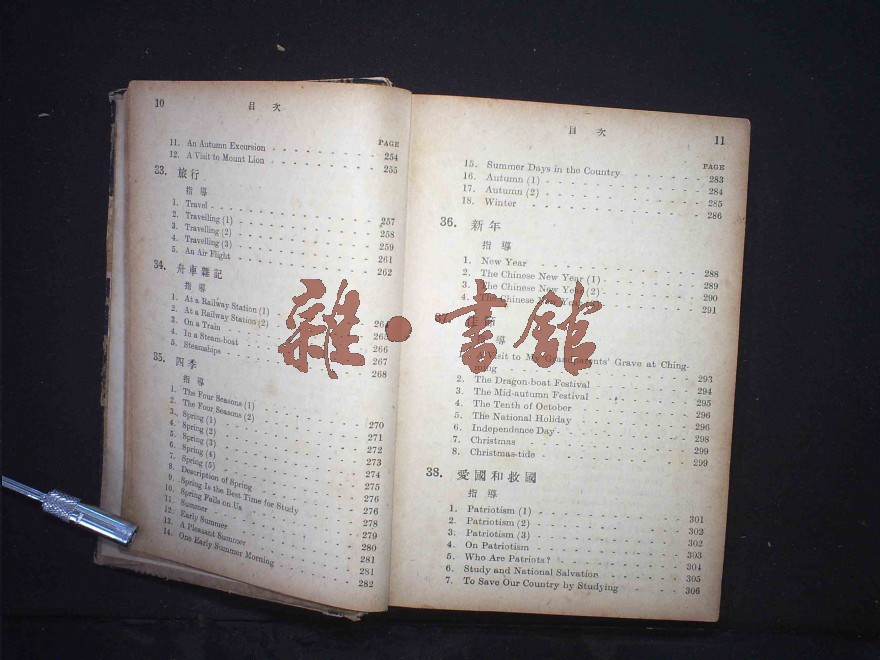 10 目 次
PAGE
11. An Autumn Excursion 254
12. A Visit to Mount Lion 255
33. 旅行
指 導
1. Travel 257
2. Travelling (1) 258
3. Travelling (2) 259
4. Travelling (3) 261
5. An Air Flight 262
34. 舟車雜記
指 導
1. At a Railway Station (1) 264
2. At a Railway Station (2) 265
3. On a Train 266
4. In a Steam-boat 267
5. Steamships 268
35. 四季
指 導
1. The Four Seasons (1) 270
2. The Four Seasons (2) 271
3. Spring (1) 272
4. Spring (2) 273
5. Spring (3) 274
6. Spring (4) 275
7. Spring (5) 276
8. Description of Spring 276
9. Spring Is the Best Time for Study 278
10. Spring Falls on Us 279
11. Summer 280
12. Early Summer 281
13. A Pleasant Summer 281
14. One Early Summer Morning 282
目 次 11
PAGE
15. Summer Days in the Country 283
16. Autumn (1) 284
17. Autumn (2) 285
18. Winter 286
36. 新年
指 導
1. New Year 288
2. The Chinese New Year (1) 289
3. The Chinese New Year (2) 290
4. The Chinese New Year 291
37. 佳節
導
Visit to My Grandparents' Grave at Ching-
ming 293
2. The Dragon-boat Festival 294
3. The Mid-autumn Festival 295
4. The Tenth of October 296
5. The National Holiday 296
6. Independence Day 298
7. Christmas 299
8. Christmas-tide 299
38. 愛國和救國
指 導
1. Patriotism (1) 301
2. Patriotism (2) 302
3. Patriotism (3) 302
4. On Patriotism 303
5. Who Are Patriots? 304
6. Study and National Salvation 305
7. To Save Our Country by Studying 306
雜·書館